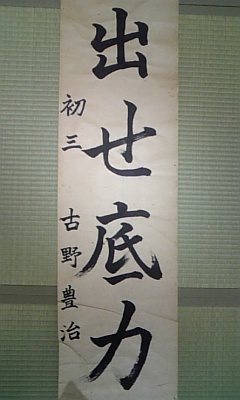 出せ底力
初三 古野豊治